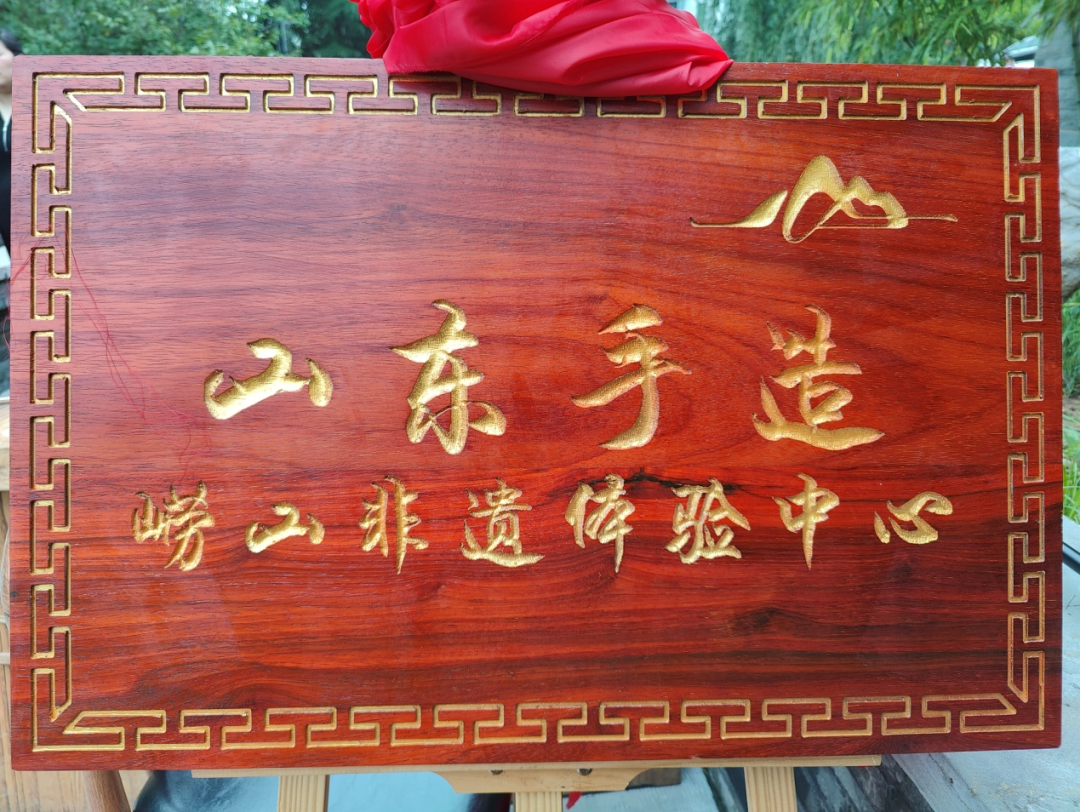 山东手造
崂山非遗体验中心